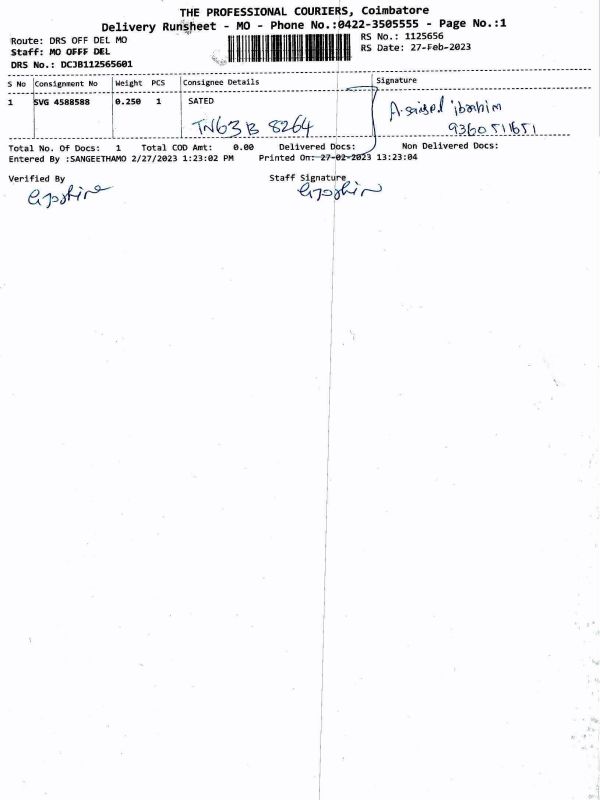 THE PROFESSIONAL COURIERS, Coimbatore
Delivery Runsheet - MO - Phone No.:0422-3505555 - Page No.:1
Route: DRS OFF DEL MO
RS No.: 1125656
Staff: MO OFFF DEL
RS Date: 27-Feb-2023
DRS No.: DCJB112565601
S No Consignment No Weight PCS Consignee Details Signature
1 SVG 4588588 0.250 1 SATED
TN63B 8264
ibrahim
9360511651
Total No. Of Docs: 1 Total COD Amt: 0.00 Delivered Docs: Non Delivered Docs:
Entered By :SANGEETHAMO 2/27/2023 1:23:02 PM Printed On: 27-02-2023 13:23:04
Verified By Staff Signature